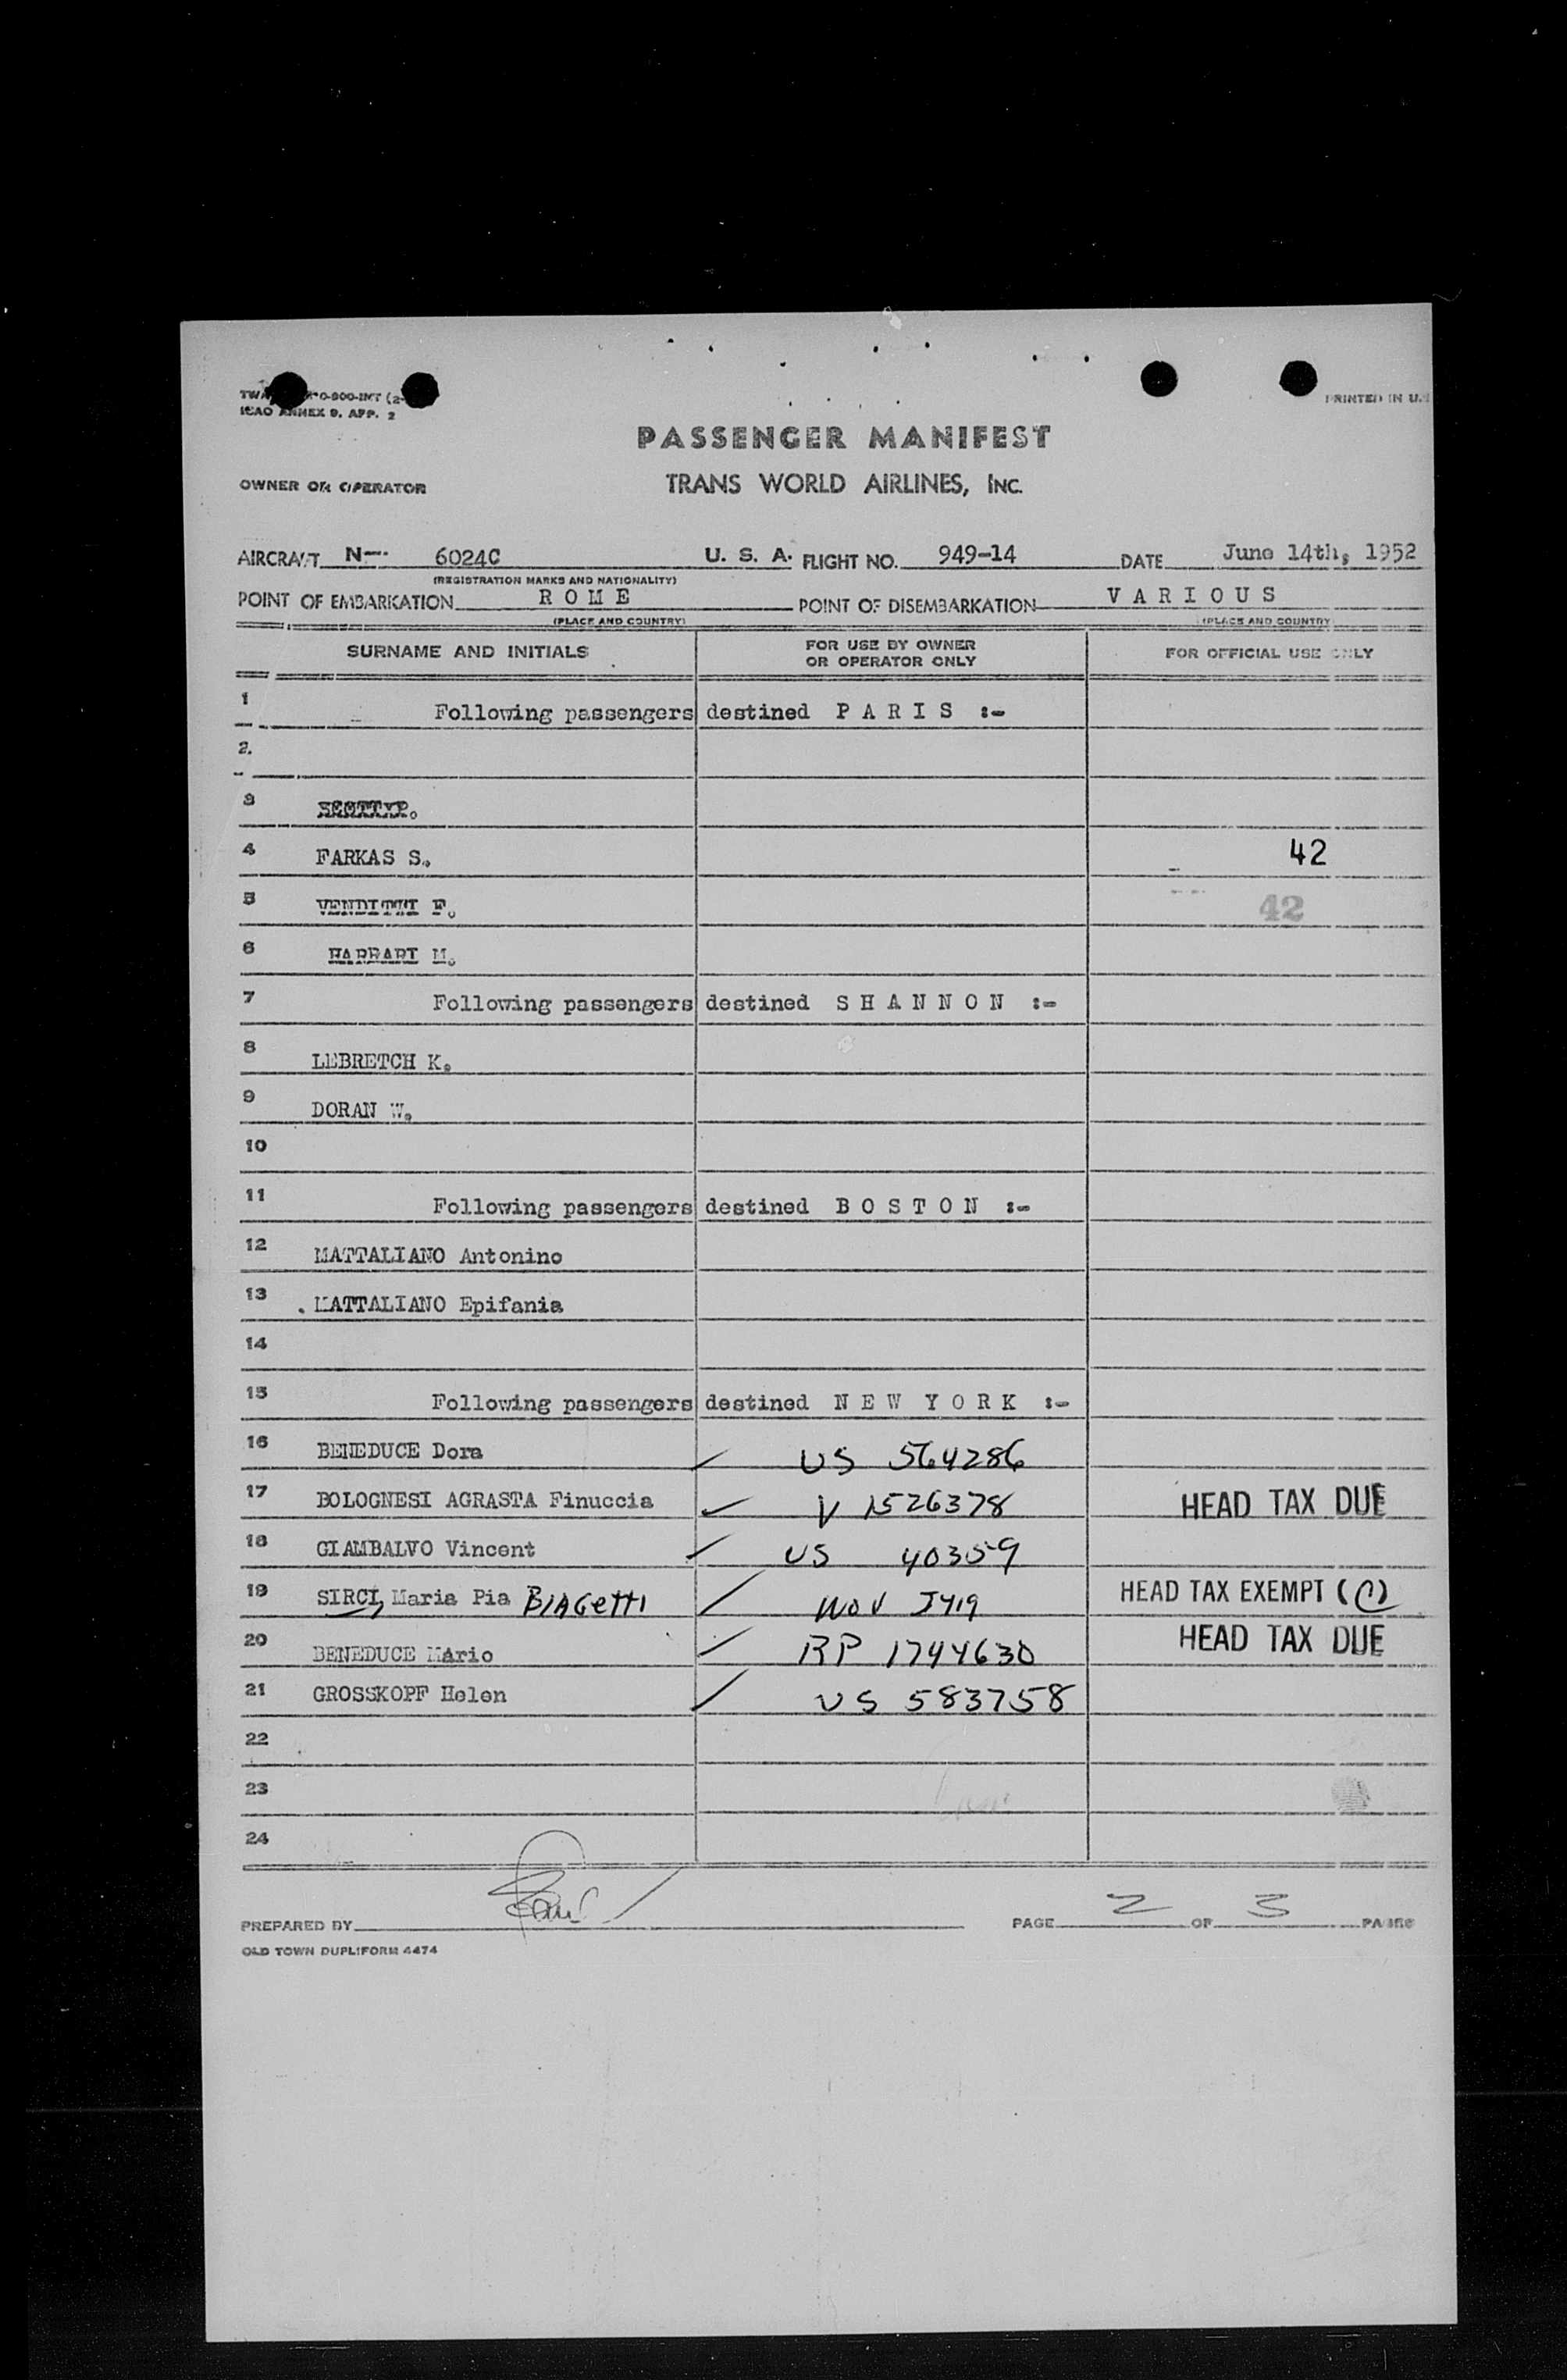 ICAO ANNEX 9. APP. 2
PRINTED IN U.S
PASSENGER MANIFEST
OWNER OR OPERATOR TRANS WORLD AIRLINES, INC.
AIRCRAFT N-. 6024C U. S. A. FLIGHT NO. 949-14 DATE June 14th, 1952
(REGISTRATION MARKS AND NATIONALITY)
POINT OF EMBARKATION ROME POINT OF DISEMBARKATION VARIOUS
(PLACE AND COUNTRY) (PLACE AND COUNTRY)
SURNAME AND INITIALS FOR USE BY OWNER OR OPERATOR ONLY FOR OFFICIAL USE ONLY
1 Following passengers destined PARIS :-
2.
3
4 FARKAS S. 42
5 VENDITTI F. 42
6 HARRARI M.
7 Following passengers destined SHANNON :-
8 LEBRETCH K.
9 DORAN W.
10
11 Following passengers destined BOSTON :-
12 MATTALIANO Antonino
13 MATTALIANO Epifania
14
15 Following passengers destined NEW YORK :-
16 BENEDUCE Dora ✓ US 564286
17 BOLOGNESI AGRASTA Finuccia ✓ V 1526378 HEAD TAX DUE
18 GIAMBALVO Vincent ✓ US 40359
19 SIRCI, Maria Pia BIAGetti ✓ NOV J419 HEAD TAX EXEMPT (C)
20 BENEDUCE Mario ✓ RP 1744630 HEAD TAX DUE
21 GROSSKOPF Helen ✓ US 583758
22
23
24
PREPARED BY PAGE 2 OF 3 PAGES
OLD TOWN DUPLIFORM 4474